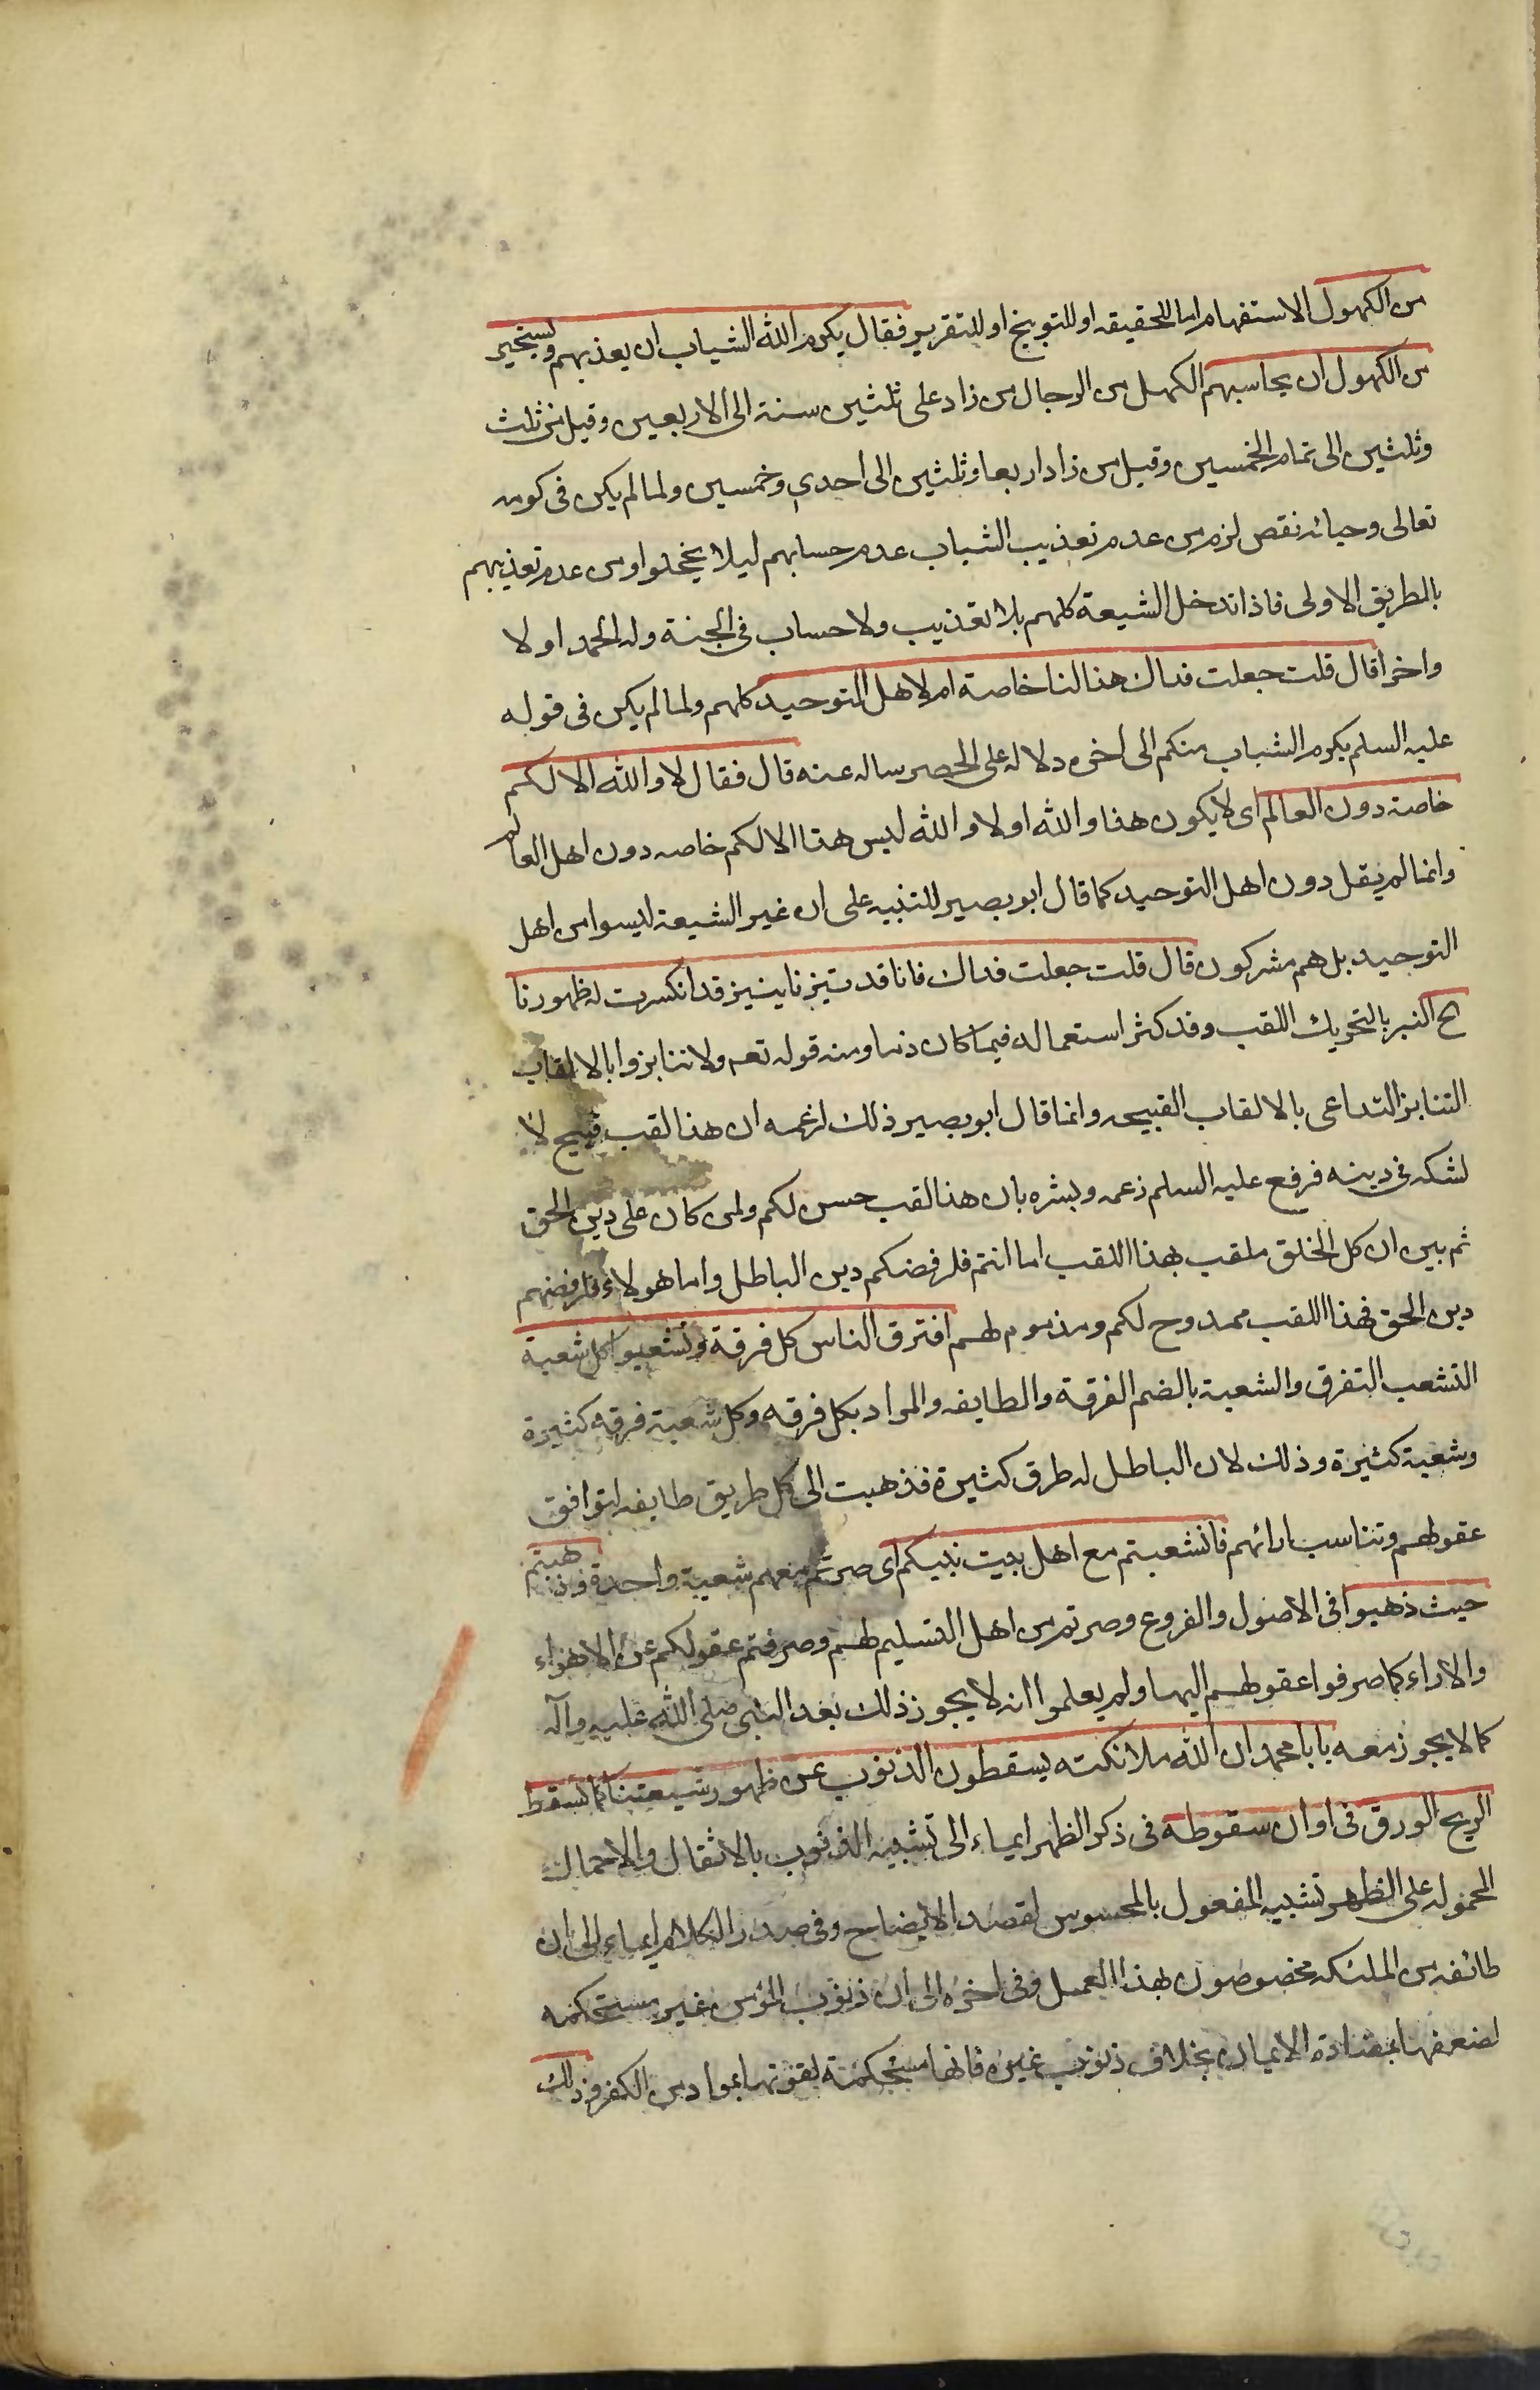 من الكهول الاستفهام اما للحقيقه او للتوبيخ او للتقرير فقال يكرم الله الشباب ان يعذبهم ويستحيى
من الكهول ان يحاسبهم الكهل من الرجال من زاد على ثلثين سنة الى الاربعين وقيل من ثلث
وثلثين الى تمام الخمسين وقيل من زاد اربعا وثلثين الى احدى وخمسين ولما لم يكن فى كرمه
تعالى وحيائه نقص لزم من عدم تعذيب الشباب عدم حسابهم ليلا يخجلوا ومن عدم تعذيبهم
بالطريق الاولى فاذا تدخل الشيعة كلهم بلا تعذيب ولا حساب فى الجنة وله الحمد اولا
واخرا قال قلت جعلت فداك هذا لنا خاصة ام لاهل التوحيد كلهم ولما لم يكن فى قوله
عليه السلم يكرم الشباب منكم الى اخره دلاله على الحصر ساله عنه قال فقال لا والله الا لكم
خاصة دون العالم اى لا يكون هذا والله اولا والله ليس هذا الا لكم خاصه دون اهل العالم
وانما لم يقل دون اهل التوحيد كما قال ابو بصير للتنبيه على ان غير الشيعة ليسوا من اهل
التوحيد بل هم مشركون قال قلت جعلت فداك فانا قد نبزنا بنبز قد انكسرت له ظهورنا
اه النبز بالتحريك اللقب وقد كثر استعماله فيما كان ذما ومنه قوله تعم ولا تنابزوا بالالقاب
التنابز التداعى بالالقاب القبيحه وانما قال ابو بصير ذلك لزعمه ان هذا لقب قبيح لا
لشكه فى دينه فرفع عليه السلم زعمه وبشره بان هذا لقب حسن لكم ولمن كان على دين الحق
ثم بين ان كل الخلق ملقب بهذا اللقب اما انتم فلرفضكم دين الباطل واما هولاء فلرفضهم
دين الحق فهذا اللقب ممدوح لكم ومذموم لهم افترق الناس كل فرقة وتشعبوا كل شعبة
التشعب التفرق والشعبة بالضم الفرقة والطايفه والمراد بكل فرقه وكل شعبة فرقه كثيرة
وشعبة كثيرة وذلك لان الباطل له طرق كثيرة فذهبت الى كل طريق طايفه لتوافق
عقولهم وتناسب ارائهم فانشعبتم مع اهل بيت نبيكم اى صرتم معهم شعبة واحدة وذهبتم
حيث ذهبوا فى الاصول والفروع وصرتم من اهل التسليم لهم وصرفتم عقولكم عن الاهواء
والاراء كما صرفوا عقولهم اليها ولم يعلموا انه لا يجوز ذلك بعد النبى صلى الله عليه وآله
كما لا يجوز معه يا با محمد ان لله ملائكته يسقطون الذنوب عن ظهور شيعتنا كما تسقط
الريح الورق فى اوان سقوطه فى ذكر الظهر ايماء الى تشبيه الذنوب بالاثقال والاحمال
المحموله على الظهر تشبيه المفعول بالمحسوس لقصد الايضاح وفى صدر الكلام ايماء الى ان
طائفه من الملئكه مخصوصون بهذا العمل وفى اخره الى ان ذنوب المؤمن غير مستحكمه
لضعفها بمضادة الايمان بخلاف ذنوب غيره فانها مستحكمة لقوتها بمواد من الكفر وذلك